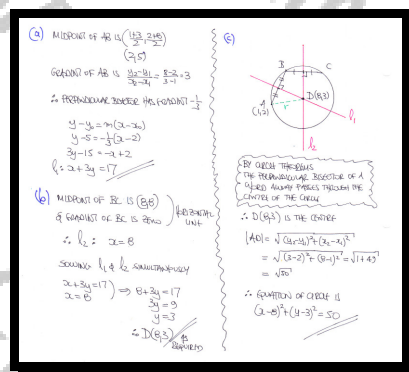 (a) MIDPOINT OF AB IS (1+3/2, 2+8/2)
(2,5)
GRADIENT OF AB IS y₂-y₁/x₂-x₁ = 8-2/3-1 = 3
∴ PERPENDICULAR BISECTOR HAS GRADIENT -1/3
y-y₀=m(x-x₀)
y-5=-1/3(x-2)
3y-15=-x+2
l₁: x+3y=17
(b) MIDPOINT OF BC IS (8,8)
& GRADIENT OF BC IS ZERO
HORIZONTAL
LINE
∴ l₂: x=8
SOLVING l₁ & l₂ SIMULTANEOUSLY
x+3y=17
x=8
⇒ 8+3y=17
3y=9
y=3
∴ D(8,3)
AS
REQUIRED
(c)
B
C
A
(1,2)
r
D(8,3)
l₁
l₂
BY CIRCLE THEOREMS
THE PERPENDICULAR BISECTOR OF A
CHORD ALWAYS PASSES THROUGH THE
CENTRE OF THE CIRCLE
∴ D(8,3) IS THE CENTRE
|AD| = √(y₂-y₁)²+(x₂-x₁)²
= √(3-2)²+(8-1)² = √1+49
= √50
∴ EQUATION OF CIRCLE IS
(x-8)²+(y-3)²=50